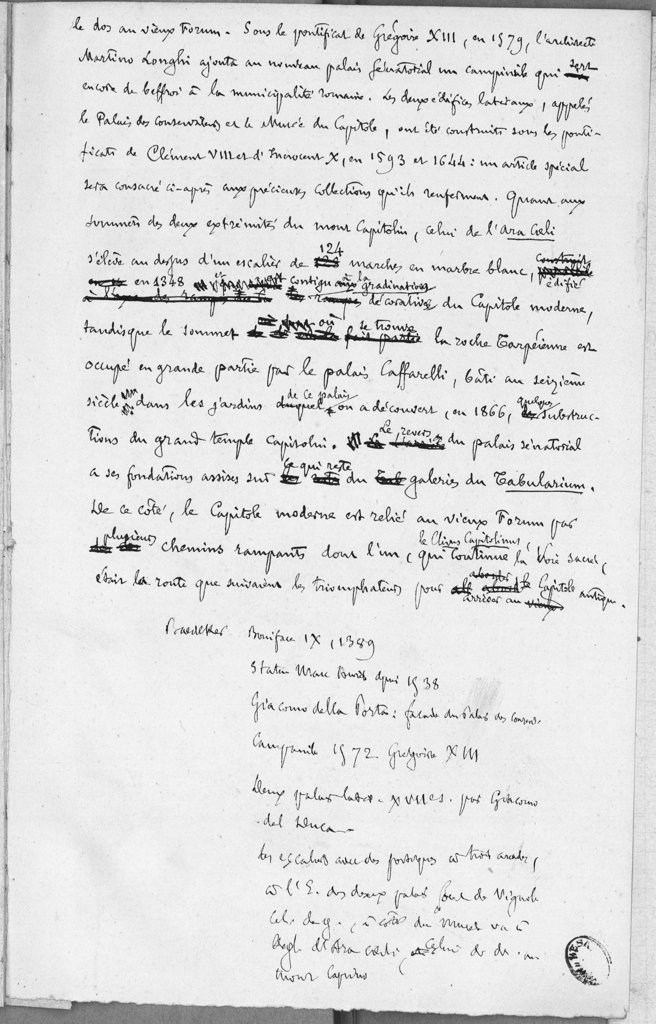 le dos au vieux Forum. Sous le pontificat de Grégoire XIII, en 1579, l'architecte
Martino Longhi ajouta au nouveau palais Sénatorial un campanile qui sert
encore de beffroi à la municipalité romaine. Les deux édifices latéraux, appelés
le Palais des conservateurs et le Musée du Capitole, ont été construits sous les ponti-
ficats de Clément VIII et d'Innocent X, en 1593 et 1644 : un article spécial
sera consacré ci-après aux précieuses collections qu'ils renferment. Quant aux
sommets des deux extrémités du mont Capitolin, celui de l'Ara Cœli
s'élève au dessus d'un escalier de 124 marches en marbre blanc, édifié
en 1348 et contigu à la gradination décorative du Capitole moderne,
tandis que le sommet où se trouve la roche Tarpéienne est
occupé en grande partie par le palais Caffarelli, bâti au seizième
siècle dans les jardins de ce palais on a découvert, en 1866, quelques substruc-
tions du grand temple Capitolin. Le revers du palais sénatorial
a ses fondations assises sur ce qui reste du galeries du Tabularium.
De ce côté, le Capitole moderne est relié au vieux Forum par
plusieurs chemins rampants dont l'un, le Clivus Capitolinus, qui continue la Voie sacrée,
était la route que suivaient les triomphateurs pour arriver au Capitole antique.
Baedeker Boniface IX, 1389
Statue Marc 1538
Giacomo della Porta : façade du Palais des conserv.
Campanile 1572 Grégoire XIII
Deux palais latér. XVIIe s. par Giacomo
del Duca
Les escaliers avec des portiques à trois arcades,
à l'E. des deux palais sont de Vignole
Celui de g., à côté du Musée va à
l'égl. d'Ara cœli, celui de dr. au
mont Caprino